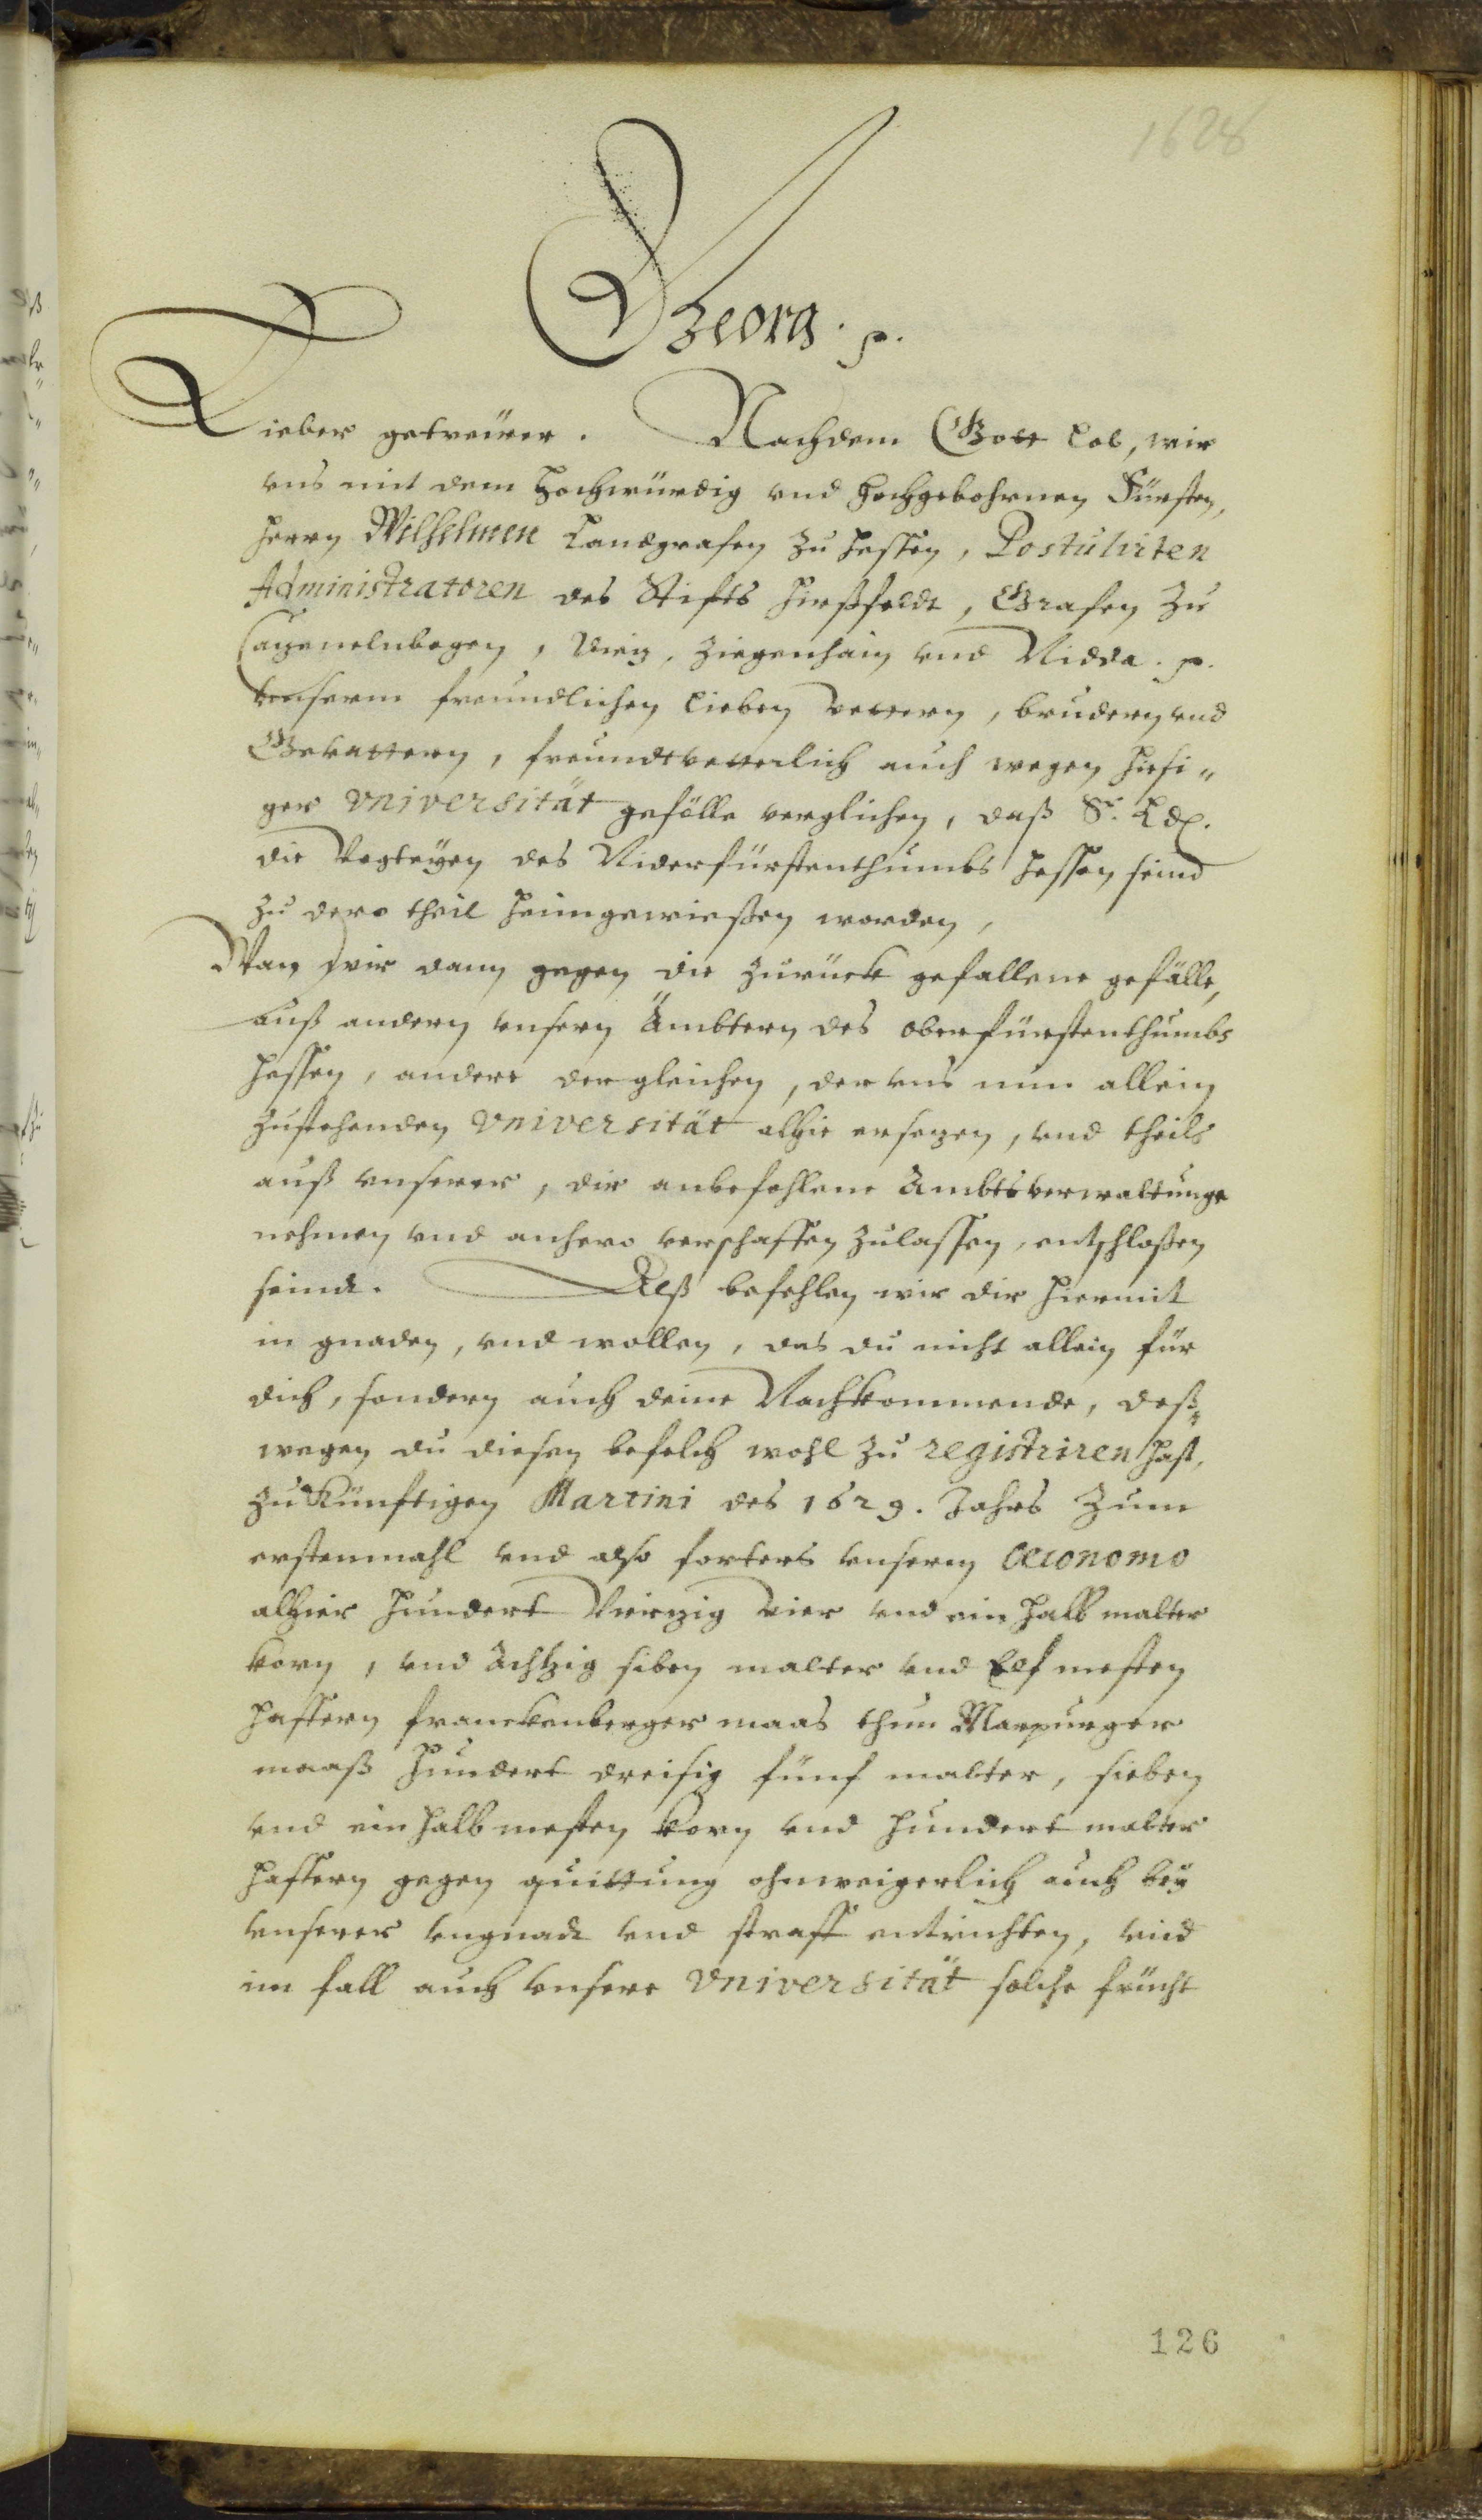 1628
Georg. p.
Lieber getreüer. Nachdem Gott lob, wir
vns mit dem Hochwürdig vnd Hochgebohrnen Fürsten,
Herrn Wilhelmen Landgrafen zu Hessen, Postulirten
Administratoren des Stifts Hirßfeldt, Grafen zu
Catzenelnbogen, Dietz, Ziegenhain vnd Nidda. p.
vnserm freundlichen lieben Vettern, brudern vnd
Gevattern, freundtvetterlich auch wegen hiesi„
ger Vniversität gefälle verglichen, daß Sr. Ld.
die Vogteyen des Niderfürstenthumbs Hessen seind
zu dero theil heimgewießen worden,
Wan wir dann gegen die zurück gefallene gefälle,
auß andern vnsern Ämbtern des oberfürstenthumbs
Hessen, andere dergleichen, der vns nun allein
zustehenden Vniversität alhie ersetzen, vnd theils
auß vnserer, dir anbefohlene Ambtsverwaltunge
nehmen vnd anhero verschaffen zulassen, entschloßen
seindt. Alß befehlen wir dir hiermit
in gnaden, vnd wollen, das du nicht allein für
dich, sondern auch deine Nachkommende, deß„
wegen du diesen befelch wohl zu registriren hast,
zukünftigen Martini des 1629. Jahrs zum
erstenmahl vnd also forters vnserm Oeconomo
alhier hundert Vierzig Vier vnd ein halb malter
korn, vnd Achtzig siben malter vnd Elf mesten
haffern franckenberger maas thun Marpurger
maaß hundert dreisig fünf malter, sieben
vnd ein halb mesten korn vnd hundert malter
haffern gegen quittung ohnweigerlich auch bey
vnserer vngnade vnd straff entrichten, vnd
im fall auch vnsere Vniversität solche frücht
126